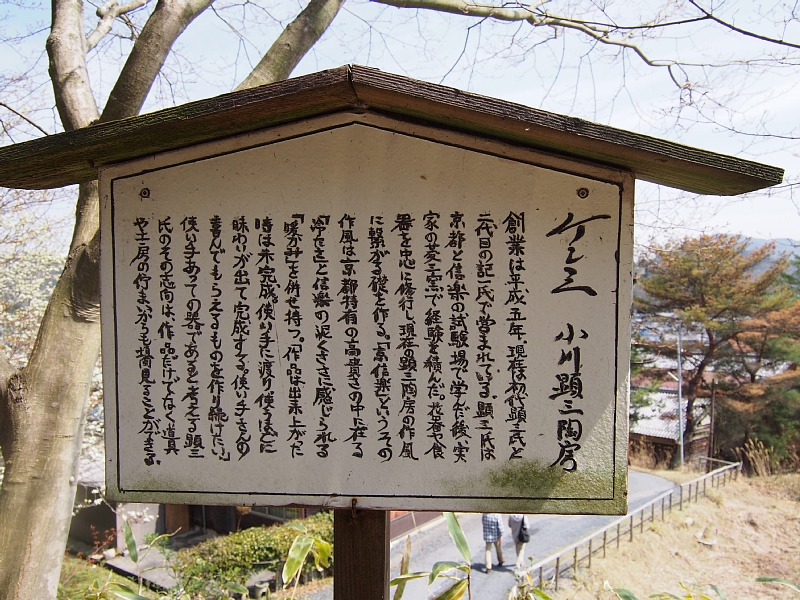 ケン三 小川顕三陶房
創業は平成五年、現在は初代顕三氏と
二代目の記一氏で営まれている。顕三氏は
京都と信楽の試験場で学んだ後、実
家の菱三窯で経験を積んだ。花器や食
器を中心に修行し、現在の顕三陶房の作風
に繋がる礎を作る。「京信楽」というその
作風は「京都特有の高貴さの中に在る
「冷たさ」と信楽の泥くささに感じられる
「暖かみ」を併せ持つ。「作品は出来上がった
時は未完成。使い手に渡り使うほどに
味わいが出て完成する。使い手さんの
喜んでもらえるものを作り続けたい。」
使い手あっての器であると考える顕三
氏のその志向は、作品だけでなく道具
や工房の佇まいからも垣間見ることができる。